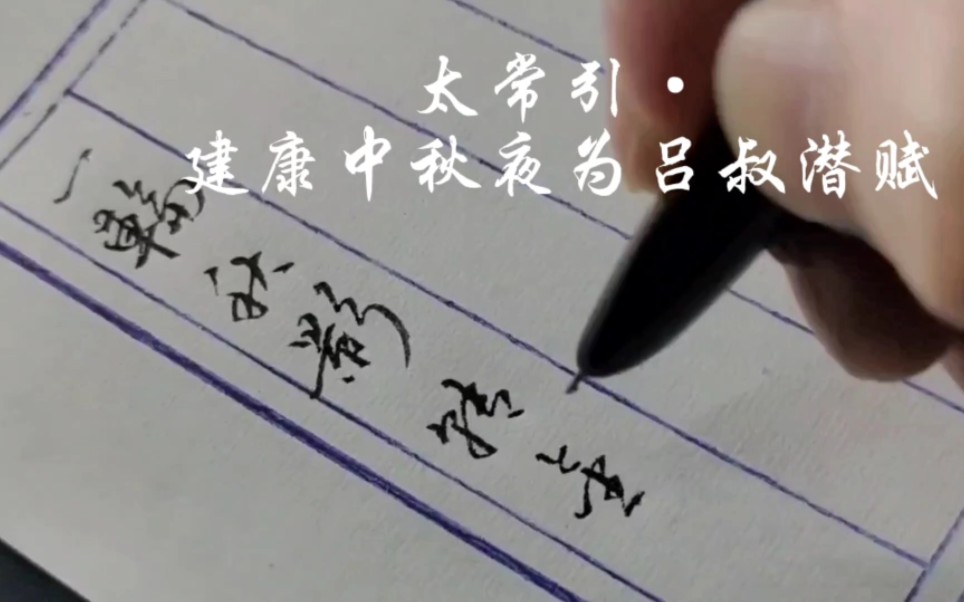 太常引·
建康中秋夜为吕叔潜赋
一轮秋影转金